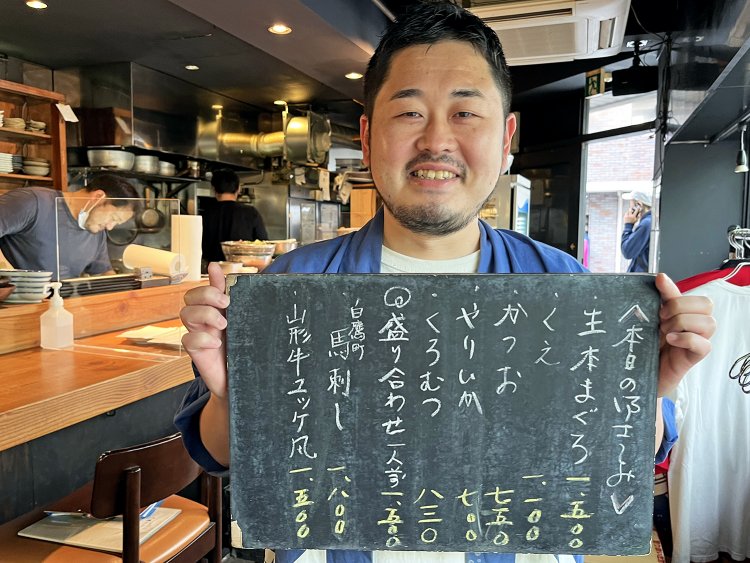 〈本日のおさしみ♡
・生本まぐろ 一、五〇〇
・くえ 一、一〇〇
・かつお 七五〇
・やりいか 七〇〇
・くろむつ 八三〇
◎盛り合わせ一人前 一、五〇〇
・白鷹町 馬刺し 一、八〇〇
・山形牛ユッケ風 一、五〇〇